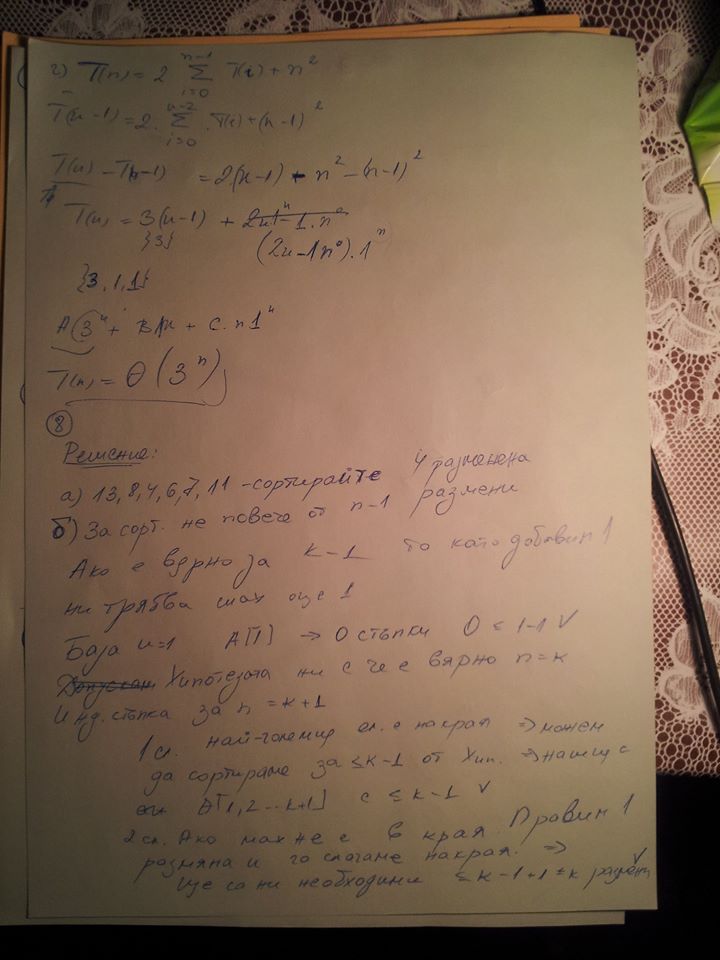 г) T(n) = 2 Σ_{i=0}^{n-1} T(i) + n²
T(n-1) = 2. Σ_{i=0}^{n-2} .T(i) + (n-1)²
T(n) - T(n-1) = 2(n-1) + n² - (n-1)²
T(n) = 3(n-1) +
{3} (2n-1n⁰).1ⁿ
{3,1,1}
A(3ⁿ + B1n + C.n1ⁿ
T(n) = Θ(3ⁿ)
8
Решение:
а) 13, 8, 4, 6, 7, 11 - сортирайте 4 размени
б) За сорт. не повече от n-1 размени
Ако е вярно за k-1 то като добавим 1
ни трябва max още 1
База n=1 A[1] → 0 стъпки 0 ≤ 1-1 V
Допускам Хипотезата ни е че е вярно n=k
Инд. стъпка за n = k+1
1сл. най-големия ел. е накрая ⇒ можем
да сортираме за ≤k-1 от Хип. ⇒
A[1,2...k+1] с ≤ k-1 V
2сл. Ако max не е в края. Правим 1
размяна и го слагаме накрая. ⇒ V
ще са ни необходими ≤ k-1+1 = k размени